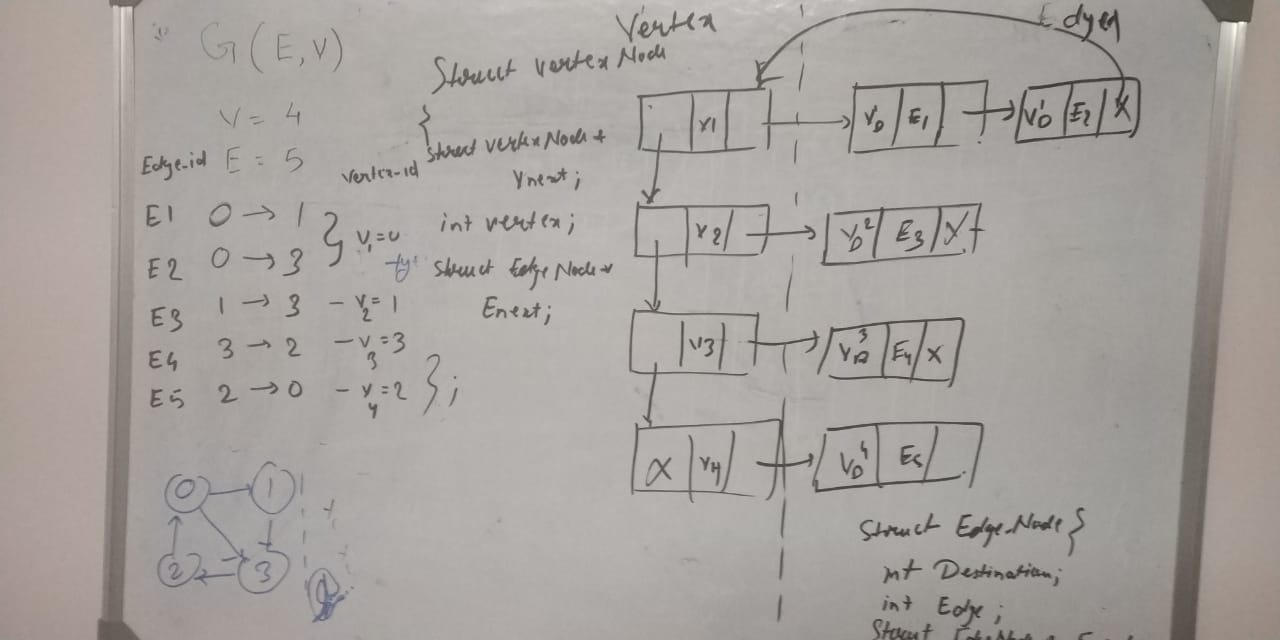 G(E,V)
V = 4
Edge-id E = 5
E1 0 → 1
E2 0 → 3 } V₁=0
E3 1 → 3 - V₂=1
E4 3 → 2 - V₃=3
E5 2 → 0 - V₄=2
vertex-id
0 1
2 3
Struct vertex Node
{
Struct vertexNode *
Vnext;
int vertex;
Struct Edge Node *
Enext;
};
Vertex Edyed
V1 V_D¹ E1 V_D¹ E2 X
V2 V_D² E3 X
V3 V_D³ E4 X
X V4 V_D⁴ E5
Struct Edge-Node {
int Destination;
int Edge;
Struct